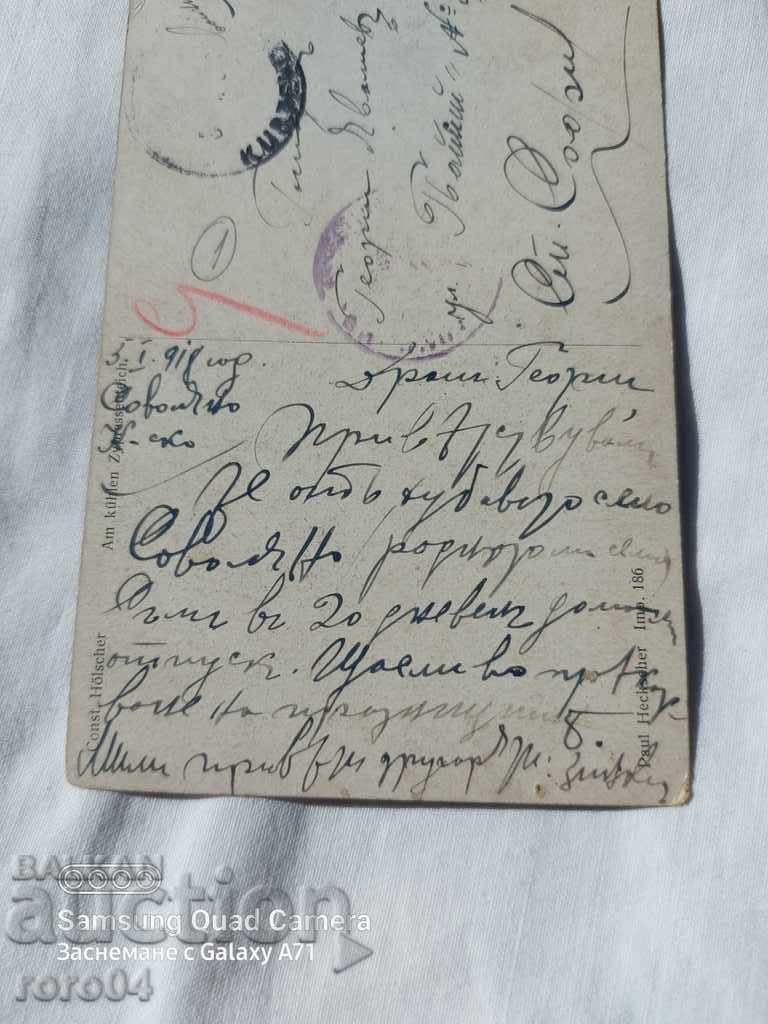 КЮСТЕН
Георги
ул.
Гр. София
1
5.I.918 год.
Соволяно
Драги Георги
Привѣтствувамъ
те отъ хубавото село
Соволяно родното ми село
Съмъ въ 20 дневенъ домашенъ
отпускъ. Щастливо прекар-
ване на празницитѣ
Мили привѣти другарю:
Am kühlen Zypressenteich.
Const. Hölscher
Paul Heckscher Imp. 186
BALKAN
auction
Samsung Quad Camera
Заснемане с Galaxy A71
roro04